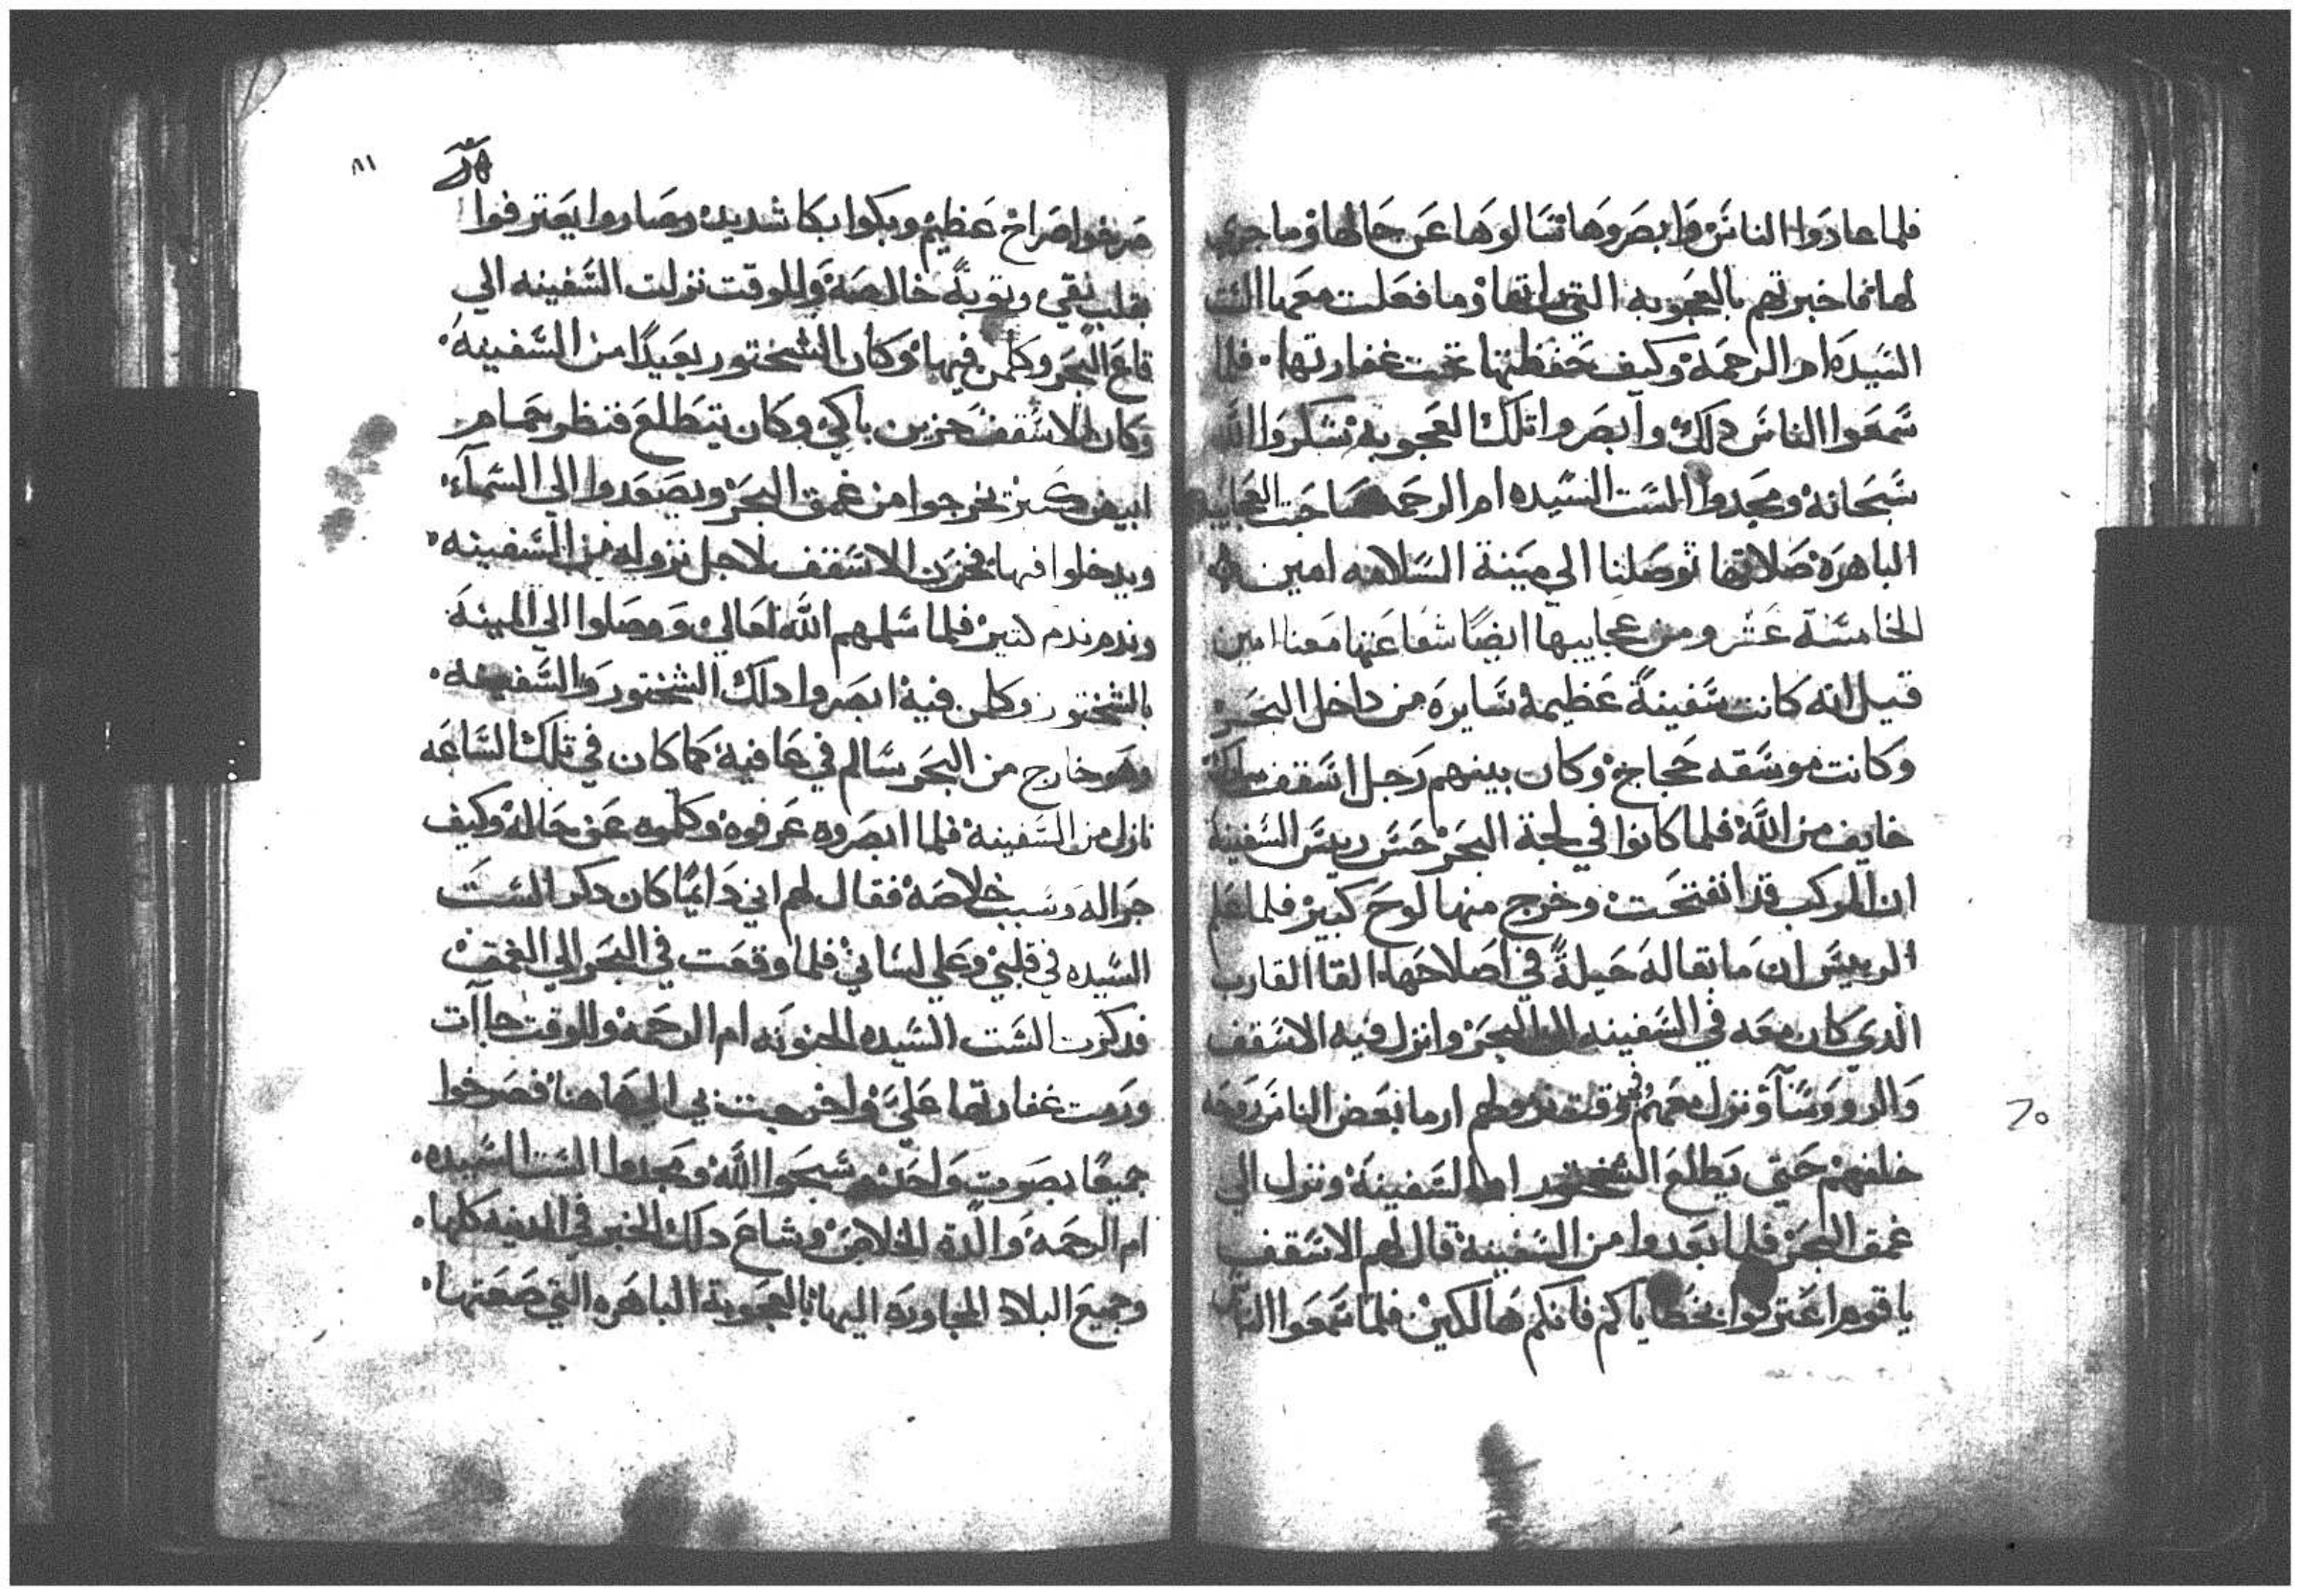 فلما عادوا الناس وابصروها تسالوها عن حالها وما جري
لها فاخبرتهم بالعجوبه التي راتها وما فعلت معها الست
السيده ام الرحمه وكيف حفظتها تحت غفارتها فلما
سمعوا الناس دلك وابصروا تلك العجوبه شكروا الله
سبحانه ومجدوا الست السيده ام الرحمه صاحبت العجايب
الباهره صلاتها توصلنا الي مينة السلامه امين
الخامسة عشر ومن عجايبها ايضًا شفاعتها معنا امين
قيل انه كانت سفينةً عظيمه سايره من داخل البحر
وكانت موسقه حجاج وكان بينهم رجل اسقف
خايف من الله فلما كانوا في لجة البحر حس رييس السفينه
ان المركب قد انفتحت وخرج منها لوح كبير فلما علم
الرييس ان ما بقا له حيلةً في اصلاحها القا القارب
الدي كان معه في السفينه الي البحر وانزل فيه الاسقف
والرووسا ونزل معهم وفي وقت نزولهم ارما بعض الناس روحه
خلفهم حتي يطلع الشختور السفينه ونزل الي
غمق البحر فلما بعدوا من السفينه قال لهم الاسقف
يا قوم اعترفوا بخطاياكم فانكم هالكين فلما سمعوا الناس
٨١
صرخوا صراخ عظيم وبكوا بكا شديد وصاروا يعترفوا
بقلب نقي وتوبةً خالصه وللوقت نزلت السفينه الي
قاع البحر وكلمن فيها وكان الشختور بعيدًا من السفينه
وكان الاسقف حزين باكي وكان يتطلع فنظر حمام
ابيض كتير خرجوا من غمق البحر ويصعدوا الي السماء
ويدخلوا فيها فحزن الاسقف لاجل نزوله من السفينه
وندم ندم كتير فلما سلمهم الله تعالي ووصلوا الي المينه
بالشختور وكلمن فيه ابصروا دلك الشختور والسفينه
وهو خارج من البحر سالم في عافيه كما كان في تلك الساعه
نازل من السفينه فلما ابصروه عرفوه وكلموه عن حاله وكيف
جرا له وسبب خلاصه فقال لهم اني دايمًا كان دكر الست
السيده في قلبي وعلي لساني فلما وقعت في البحر الي الغمق
فدكرت الست السيده الحنونه ام الرحمه وللوقت جاات
ورمت غفارتها علي واخرجت بي الي هاهنا فصرخوا
جميعًا بصوت واحد وسبحوا الله ومجدوا الست السيده
ام الرحمه والدة الخلاص وشاع دلك الخبر في المدينه كلها
وجميع البلاد المجاوره اليها بالعجوبة الباهره التي صنعتها